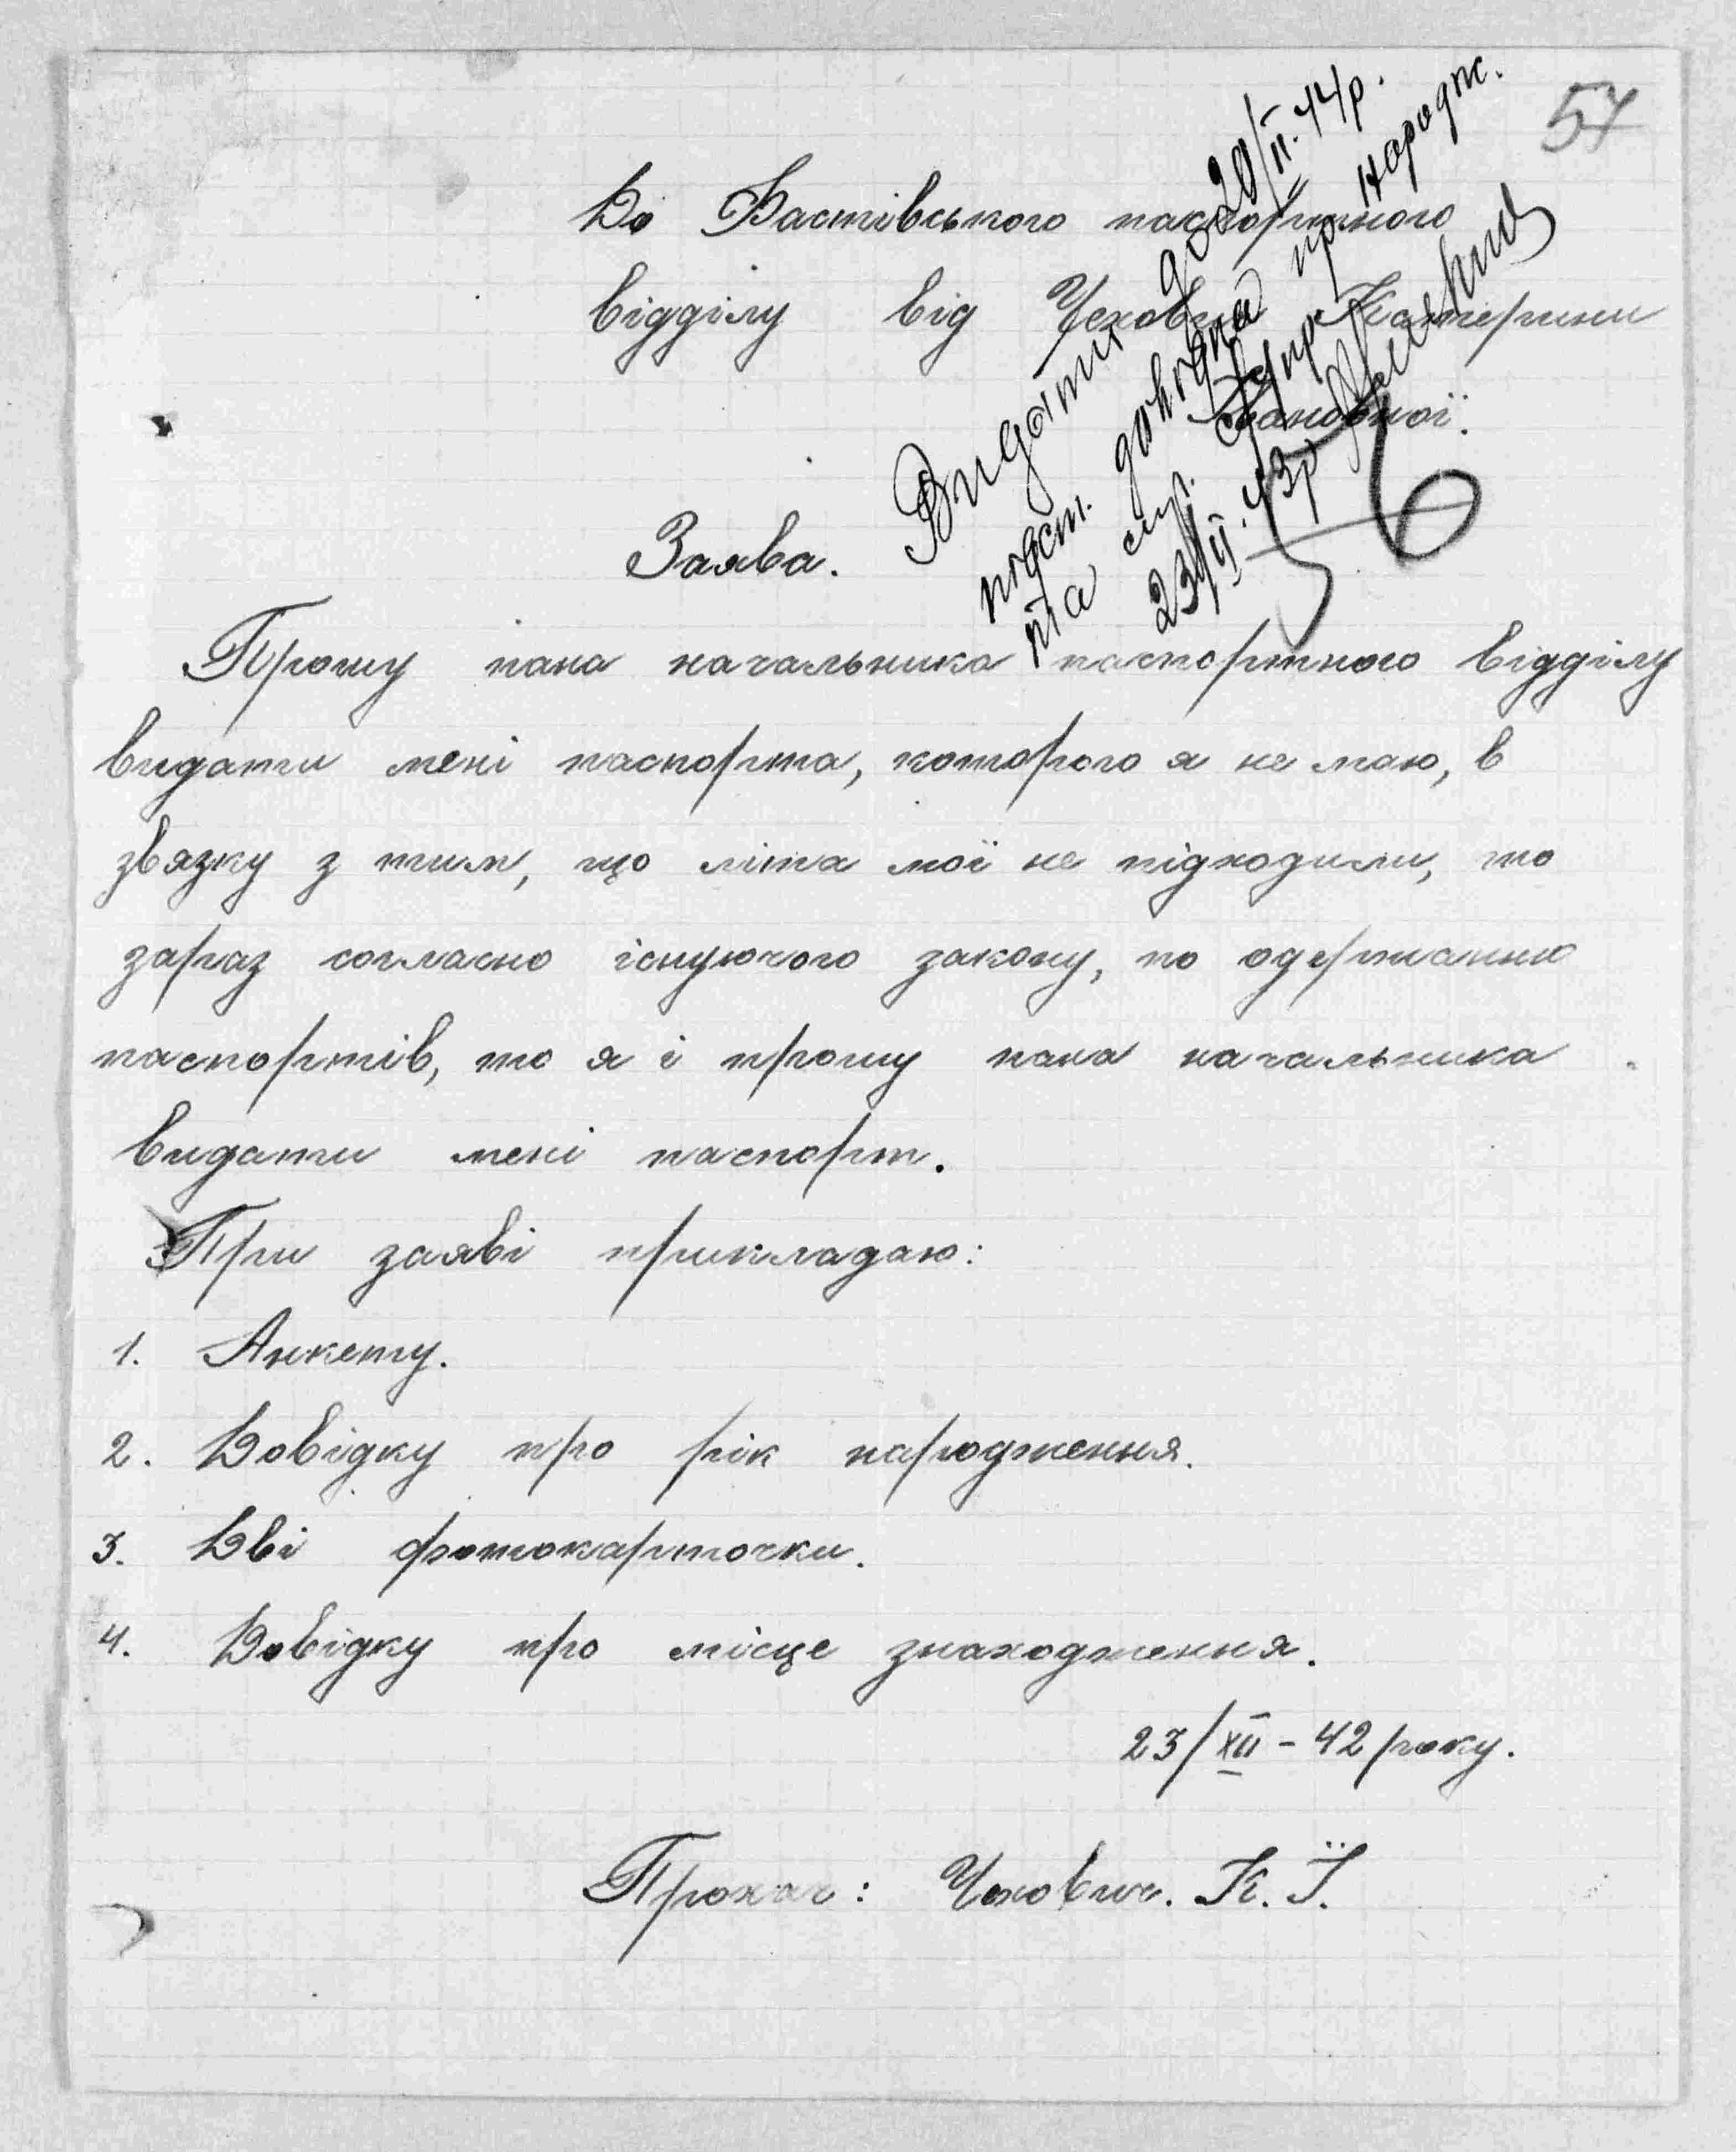 57
До Фастівського паспортного
відділу від Чехович Катерини
Івановної.
Видати до 20/II.44р.
паст. довідка пр народж.
та
23/II.43р
Заява.
Прошу пана начальника паспортного відділу
видати мені паспорта, которого я не маю, в
звязку з тим, що літа мої не підходили, то
зараз согласно існуючого закону, по одержанню
паспортів, то я і прошу пана начальника
видати мені паспорт.
При заяві прикладаю:
1. Анкету.
2. Довідку про рік народження.
3. Дві фотокарточки.
4. Довідку про місце знаходження.
23/XII - 42 року.
Прохач: Чехович. К. Ї.